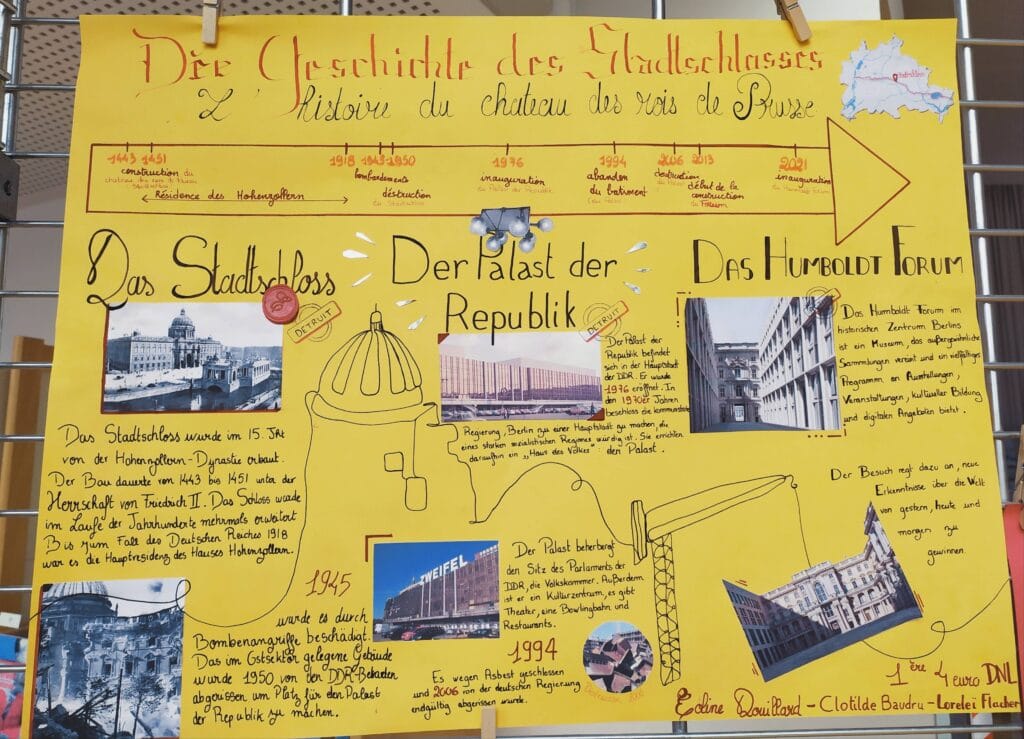 Die Geschichte des Stadtschlosses
L'histoire du chateau des rois de Prusse
1443 1451 1918 1945 1950 1976 1994 2006 2013 2021
construction du
chateau des rois de Prusse
Stadtschloss
Résidence des Hohenzollern
bombardements
déstruction
du Stadtschloss
inauguration
du Palast der Republik
abandon
du batiment
(du Palast)
destruction
du Palast
début de la
construction
du Forum
inauguration
du Humboldt Forum
Das Stadtschloss
DÉTRUIT
Das Stadtschloss wurde im 15. Jht
von der Hohenzollern-Dynastie erbaut.
Der Bau dauerte von 1443 bis 1451 unter der
Herrschaft von Friedrich II. Das Schloss wurde
im Laufe der Jahrhunderte mehrmals erweitert
Bis zum Fall des Deutschen Reiches 1918
war es die Hauptresidenz des Hauses Hohenzollern.
1945
wurde es durch
Bombenangriffe beschädigt.
Das im Ostsektor gelegene Gebäude
wurde 1950 von den DDR-Behörden
abgerissen um Platz für den Palast
der Republik zu machen.
Der Palast der
Republik
DÉTRUIT
Der Palast der
Republik befindet
sich in der Hauptstadt
der DDR. Er wurde
1976 eröffnet. In
den 1970er Jahren
beschloss die kommunistische
Regierung, Berlin zu einer Hauptstadt zu machen, die
eines starken sozialistischen Regimes würdig ist. Sie errichten
daraufhin ein "Haus des Volkes": den Palast.
ZWEIFEL
Der Palast beherbergt
den Sitz des Parlaments der
DDR, die Volkskammer. Außerdem
ist er ein Kulturzentrum, es gibt
Theater, eine Bowlingbahn und
Restaurants.
1994
Es wegen Asbest geschlossen
und 2006 von der deutschen Regierung
endgültig abgerissen wurde.
Das Humboldt Forum
Das Humboldt Forum im
historischen Zentrum Berlins
ist ein Museum, das außergewöhnliche
Sammlungen vereint und ein vielfältiges
Programm an Ausstellungen,
Veranstaltungen, kultureller Bildung
und digitalen Angeboten bietet.
Der Besuch regt dazu an, neue
Erkenntnisse über die Welt
von gestern, heute und
morgen zu
gewinnen.
1ère 4 euro DNL
Eoline Douillard - Clotilde Baudru - Lorelei Flacher